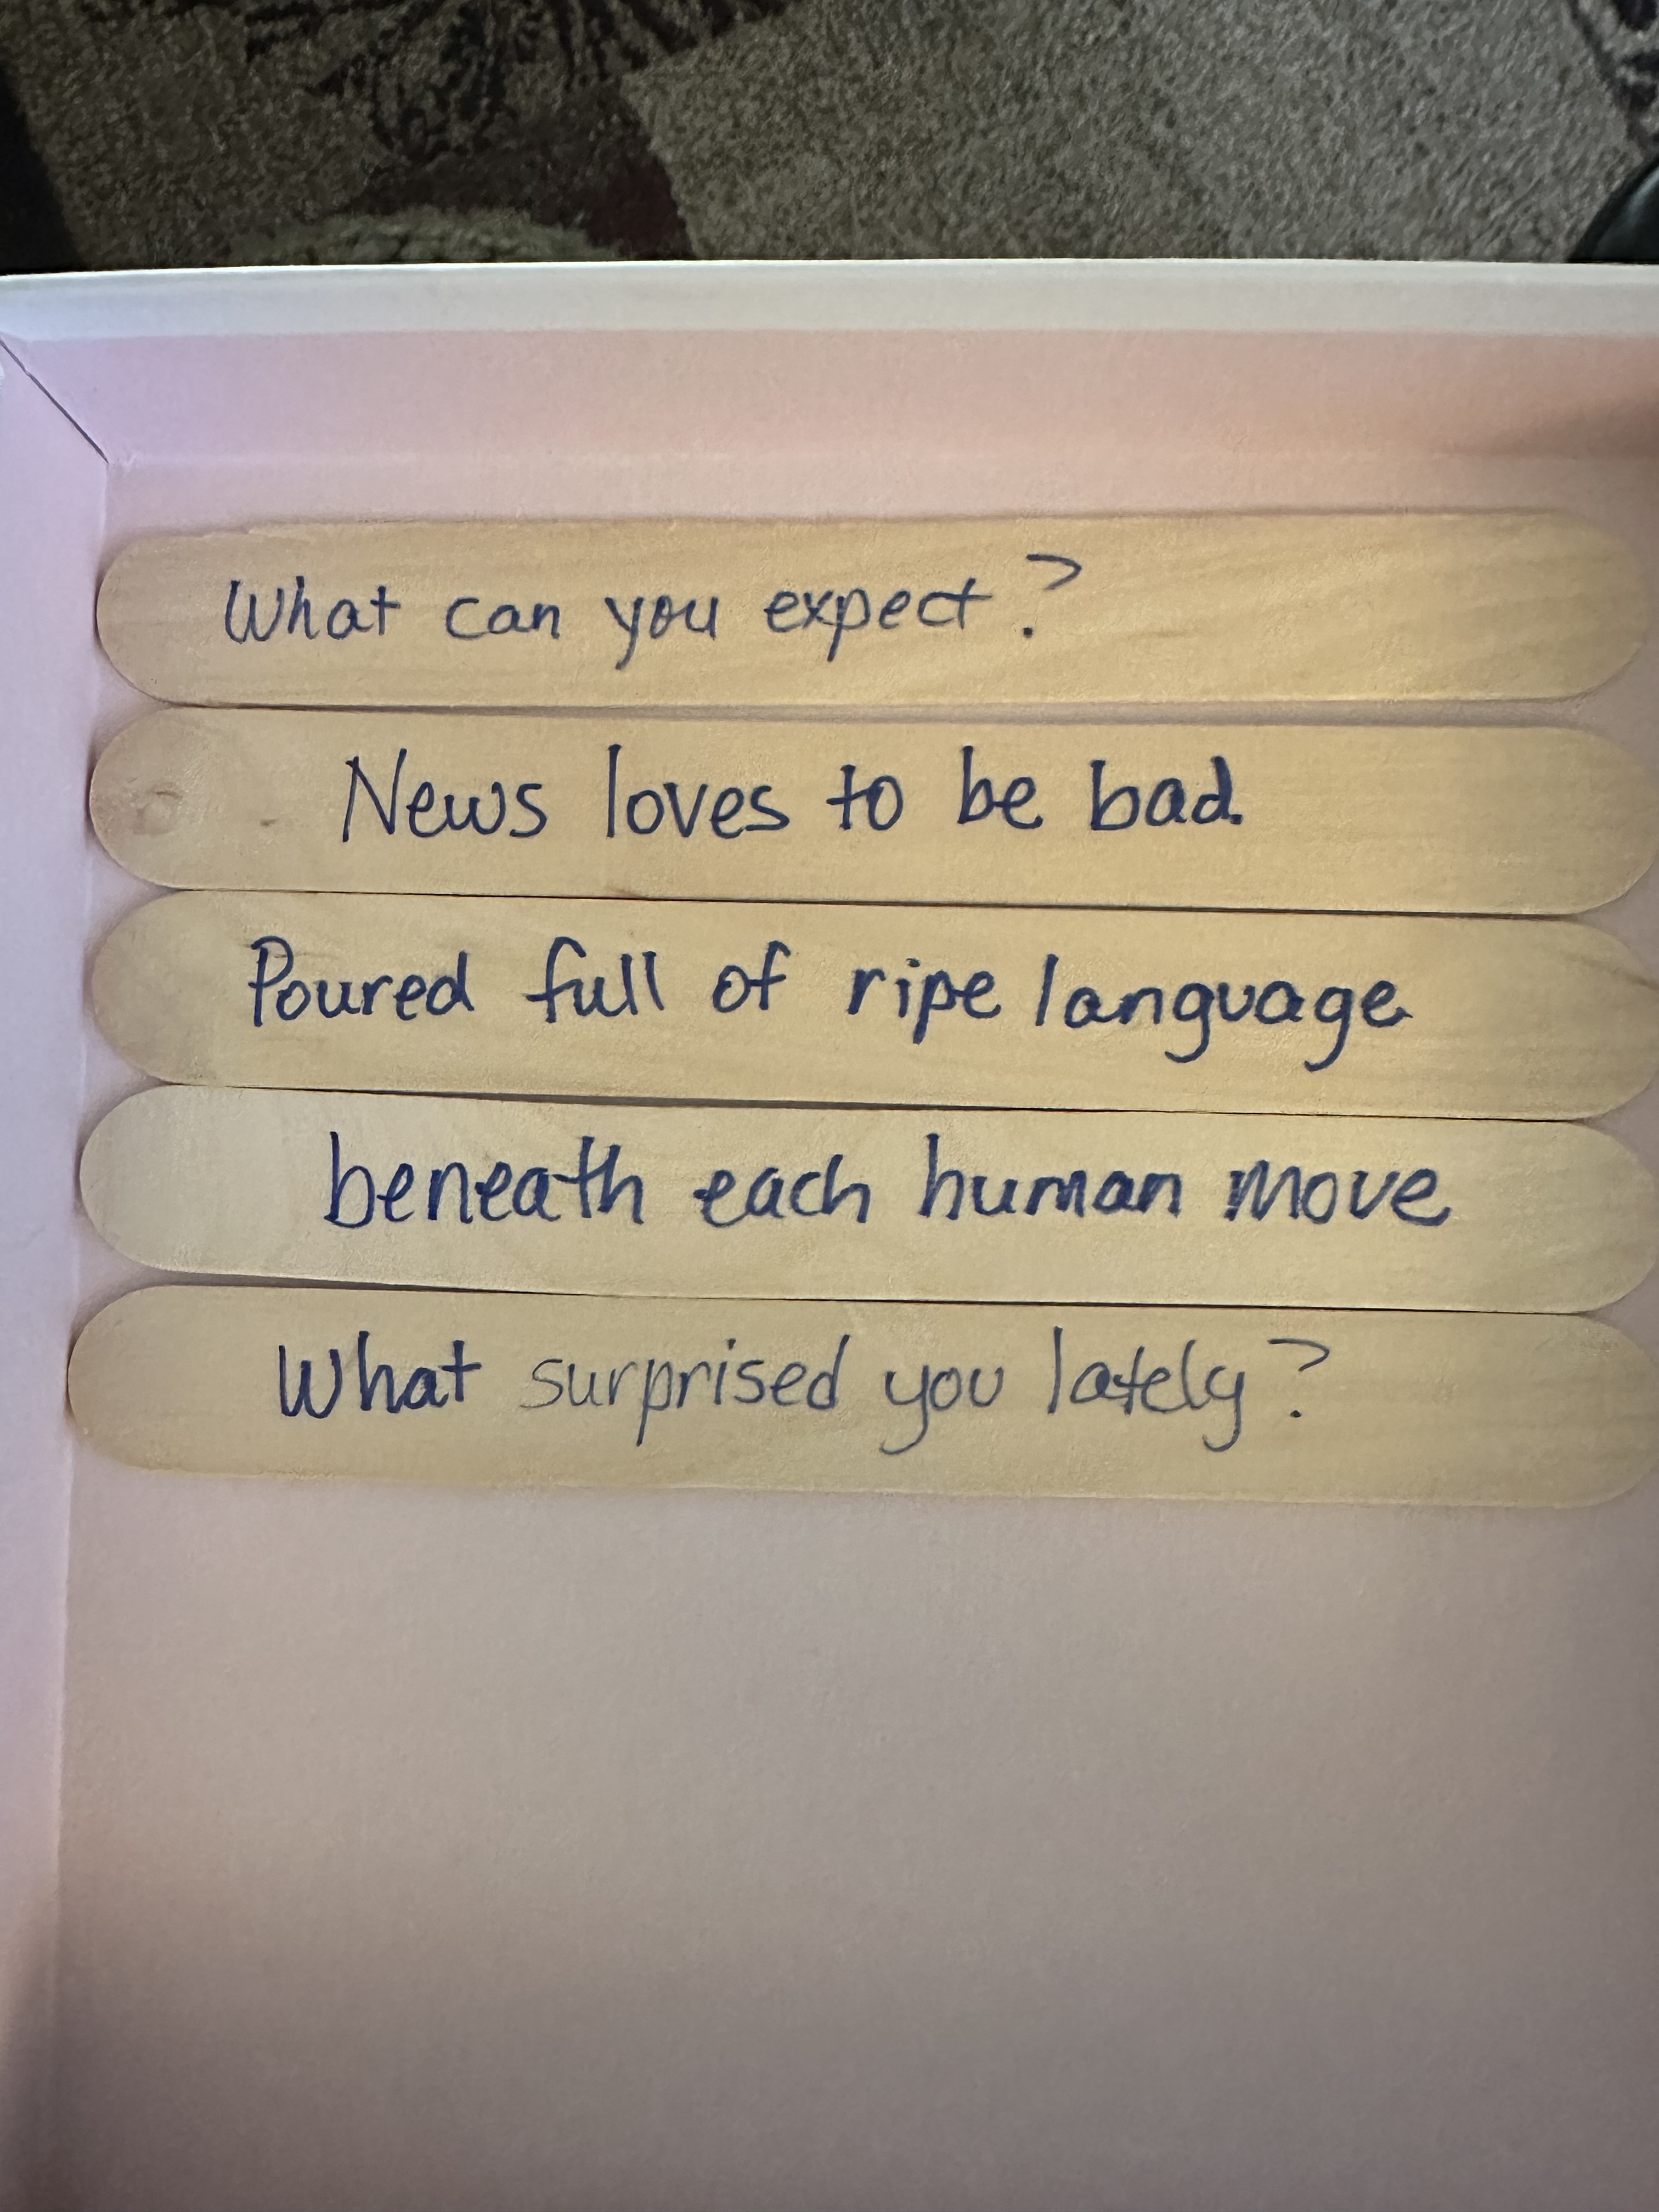 What can you expect?
News loves to be bad.
Poured full of ripe language
beneath each human move
What surprised you lately?